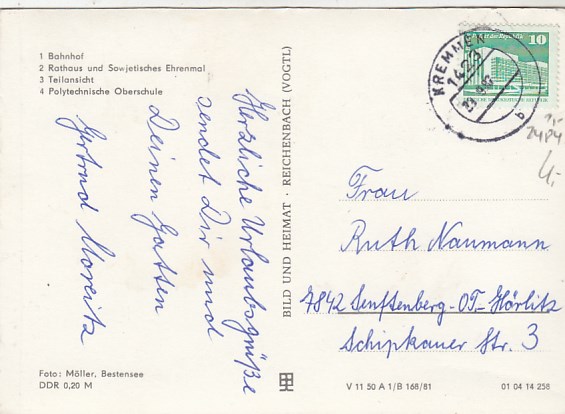 1 Bahnhof
2 Rathaus und Sowjetisches Ehrenmal
3 Teilansicht
4 Polytechnische Oberschule
Herzliche Urlaubsgrüße
sendet Dir und
Deinen Gatten
Gertrud Moreitz
Foto: Möller, Bestensee
DDR 0,20 M
BILD UND HEIMAT · REICHENBACH (VOGTL)
KREMMEN
1423
b
10
Frau
Ruth Naumann
7842 Senftenberg-OT-Hörlitz
Schipkauer Str. 3
V 11 50 A 1/B 168/81
01 04 14 258